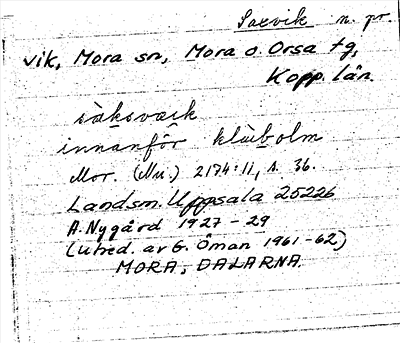 Saxvik n. pr.
vik, Mora sn, Mora o. Orsa tg,
Kopp. län
innanför
Mor. (Nu.) 2174:11, s. 36.
Landsm. Uppsala 25226
A. Nygård 1927-29
(utred. av G. Öman 1961-62)
MORA, DALARNA.